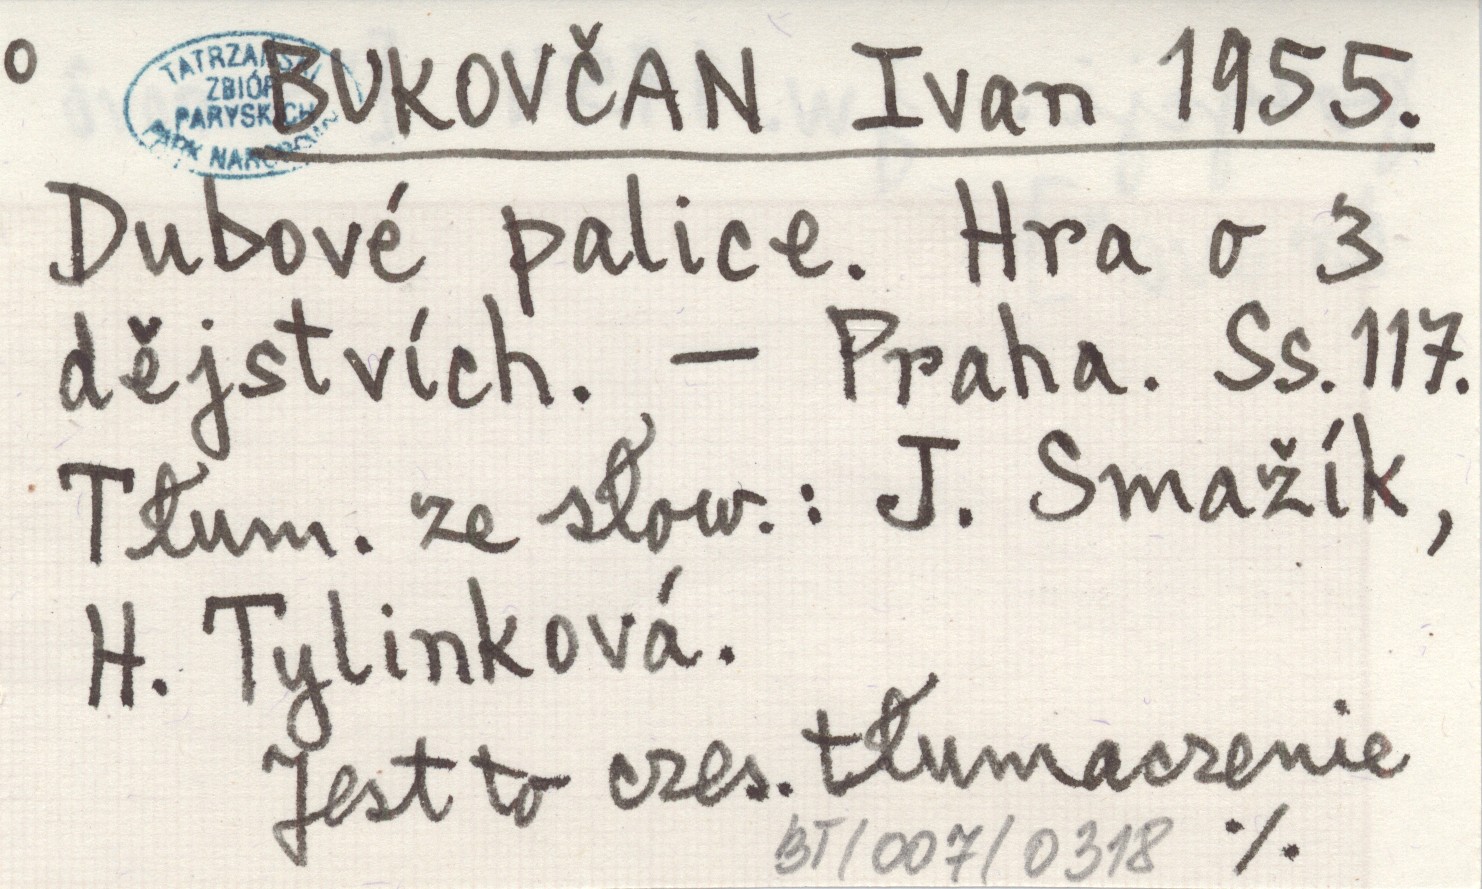 o BUKOVČAN Ivan 1955.
TATRZAŃSKI
ZBIÓR
PARYSKICH
PARK NARODOWY
Dubové palice. Hra o 3
dějstvích. — Praha. Ss. 117.
Tłum. ze słow.: J. Smažík,
H. Tylinková.
Jest to czes. tłumaczenie
BT/007/0318 ./.